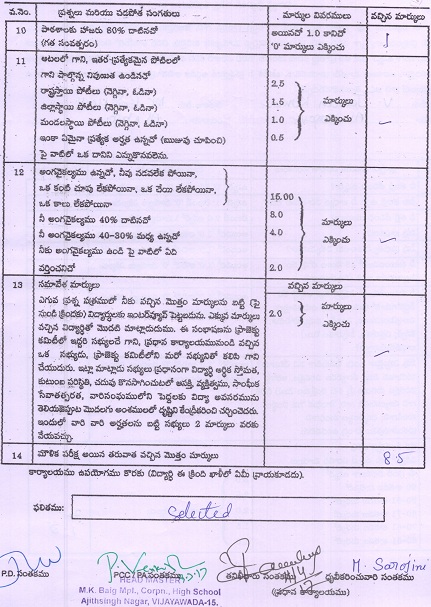 వ.నెం. ప్రశ్నలు మరియు పడపోత సంగతులు మార్కుల వివరములు వచ్చిన మార్కులు
10 పాఠశాలకు హాజరు 60% దాటినదో అయినచో 1.0 కానిచో
(గత సంవత్సరం) '0' మార్కులు ఎక్కించు
11 ఆటలలో గాని, ఇతర ప్రత్యేకమైన పోటీలలో
గాని పాల్గొన్న నిపుణత ఉండినచో 2.5
రాష్ట్రస్థాయి పోటీలు (నెగ్గినా, ఓడినా) 1.5 మార్కులు
జిల్లాస్థాయి పోటీలు (నెగ్గినా, ఓడినా)
మండలస్థాయి పోటీలు (నెగ్గినా, ఓడినా) 1.0 ఎక్కించు
ఇంకా ఏమైనా ప్రత్యేక అర్హత ఉన్నచో (ఋజువు చూపించి) 0.5
పై వాటిలో ఒక దానిని ఎన్నుకొనవలెను.
12 అంగవైకల్యము ఉన్నచో, నీవు నడవలేక పోయినా,
ఒక కంటి చూపు లేకపోయినా, ఒక చేయి లేకపోయినా,
ఒక కాలు లేకపోయినా 16.00
నీ అంగవైకల్యము 40% దాటినచో 8.0 మార్కులు
నీ అంగవైకల్యము 40-30% మధ్య ఉన్నచో 4.0
నీకు అంగవైకల్యము ఉండి పై వాటిలో ఏది ఎక్కించు
వర్తించనిచో 2.0
13 సమావేశ మార్కులు వచ్చిన మార్కులు
ఎగువ ప్రశ్న పత్రములో నీకు వచ్చిన మొత్తం మార్కులను బట్టి (పై
నుండి క్రిందకు) విద్యార్థులకు ఇంటర్వ్యూవ్ పెట్టబడును. ఎక్కువ మార్కులు 2.0 మార్కులు
వచ్చిన విద్యార్థితో మొదటి మాట్లాడుదుము. ఈ సంభాషణను ప్రాజెక్టు ఎక్కించు
కమిటీలో ఇద్దరి సభ్యులచే గాని, ప్రధాన కార్యాలయమునుండి వచ్చిన
ఒక సభ్యుడు, ప్రాజెక్టు కమిటీలోని మరో సభ్యునితో కలిసి గాని
చేయుదురు. ఇట్లా మాట్లాడు సభ్యులు ప్రధానంగా విద్యార్థి ఆర్థిక స్తోమత,
కుటుంబ పరిస్థితి, చదువు కొనసాగించుటలో ఆసక్తి, వ్యక్తిత్వము, సాంఘీక
సేవాతత్పరత, వారిసంఘములోని పెద్దలకు విద్యా అవసరమును
తెలియకెప్పుట మొదలగు అంశములలో దృష్టిని కేంద్రీకరించి చర్చించెదరు.
ఇందులో వారి వారి అర్హతలను బట్టి సభ్యులు 2 మార్కులు వరకు
వేయవచ్చు.
14 మౌళిక పరీక్ష అయిన తరువాత వచ్చిన మొత్తం మార్కులు 8.5
కార్యాలయము ఉపయోగము కొరకు (విద్యార్థి ఈ క్రింది ఖాళీలో ఏమీ వ్రాయకూడదు).
ఫలితము: selected
M. Sarojini
P.D. సంతకము PCC / PA సంతకము తనిఖీదారు సంతకము ధృవీకరించువారి సంతకము
HEAD MASTER (ప్రధాన కార్యాలయం)
M.K. Baig Mpl., Corpn., High School
Ajithsingh Nagar, VIJAYAWADA-15.